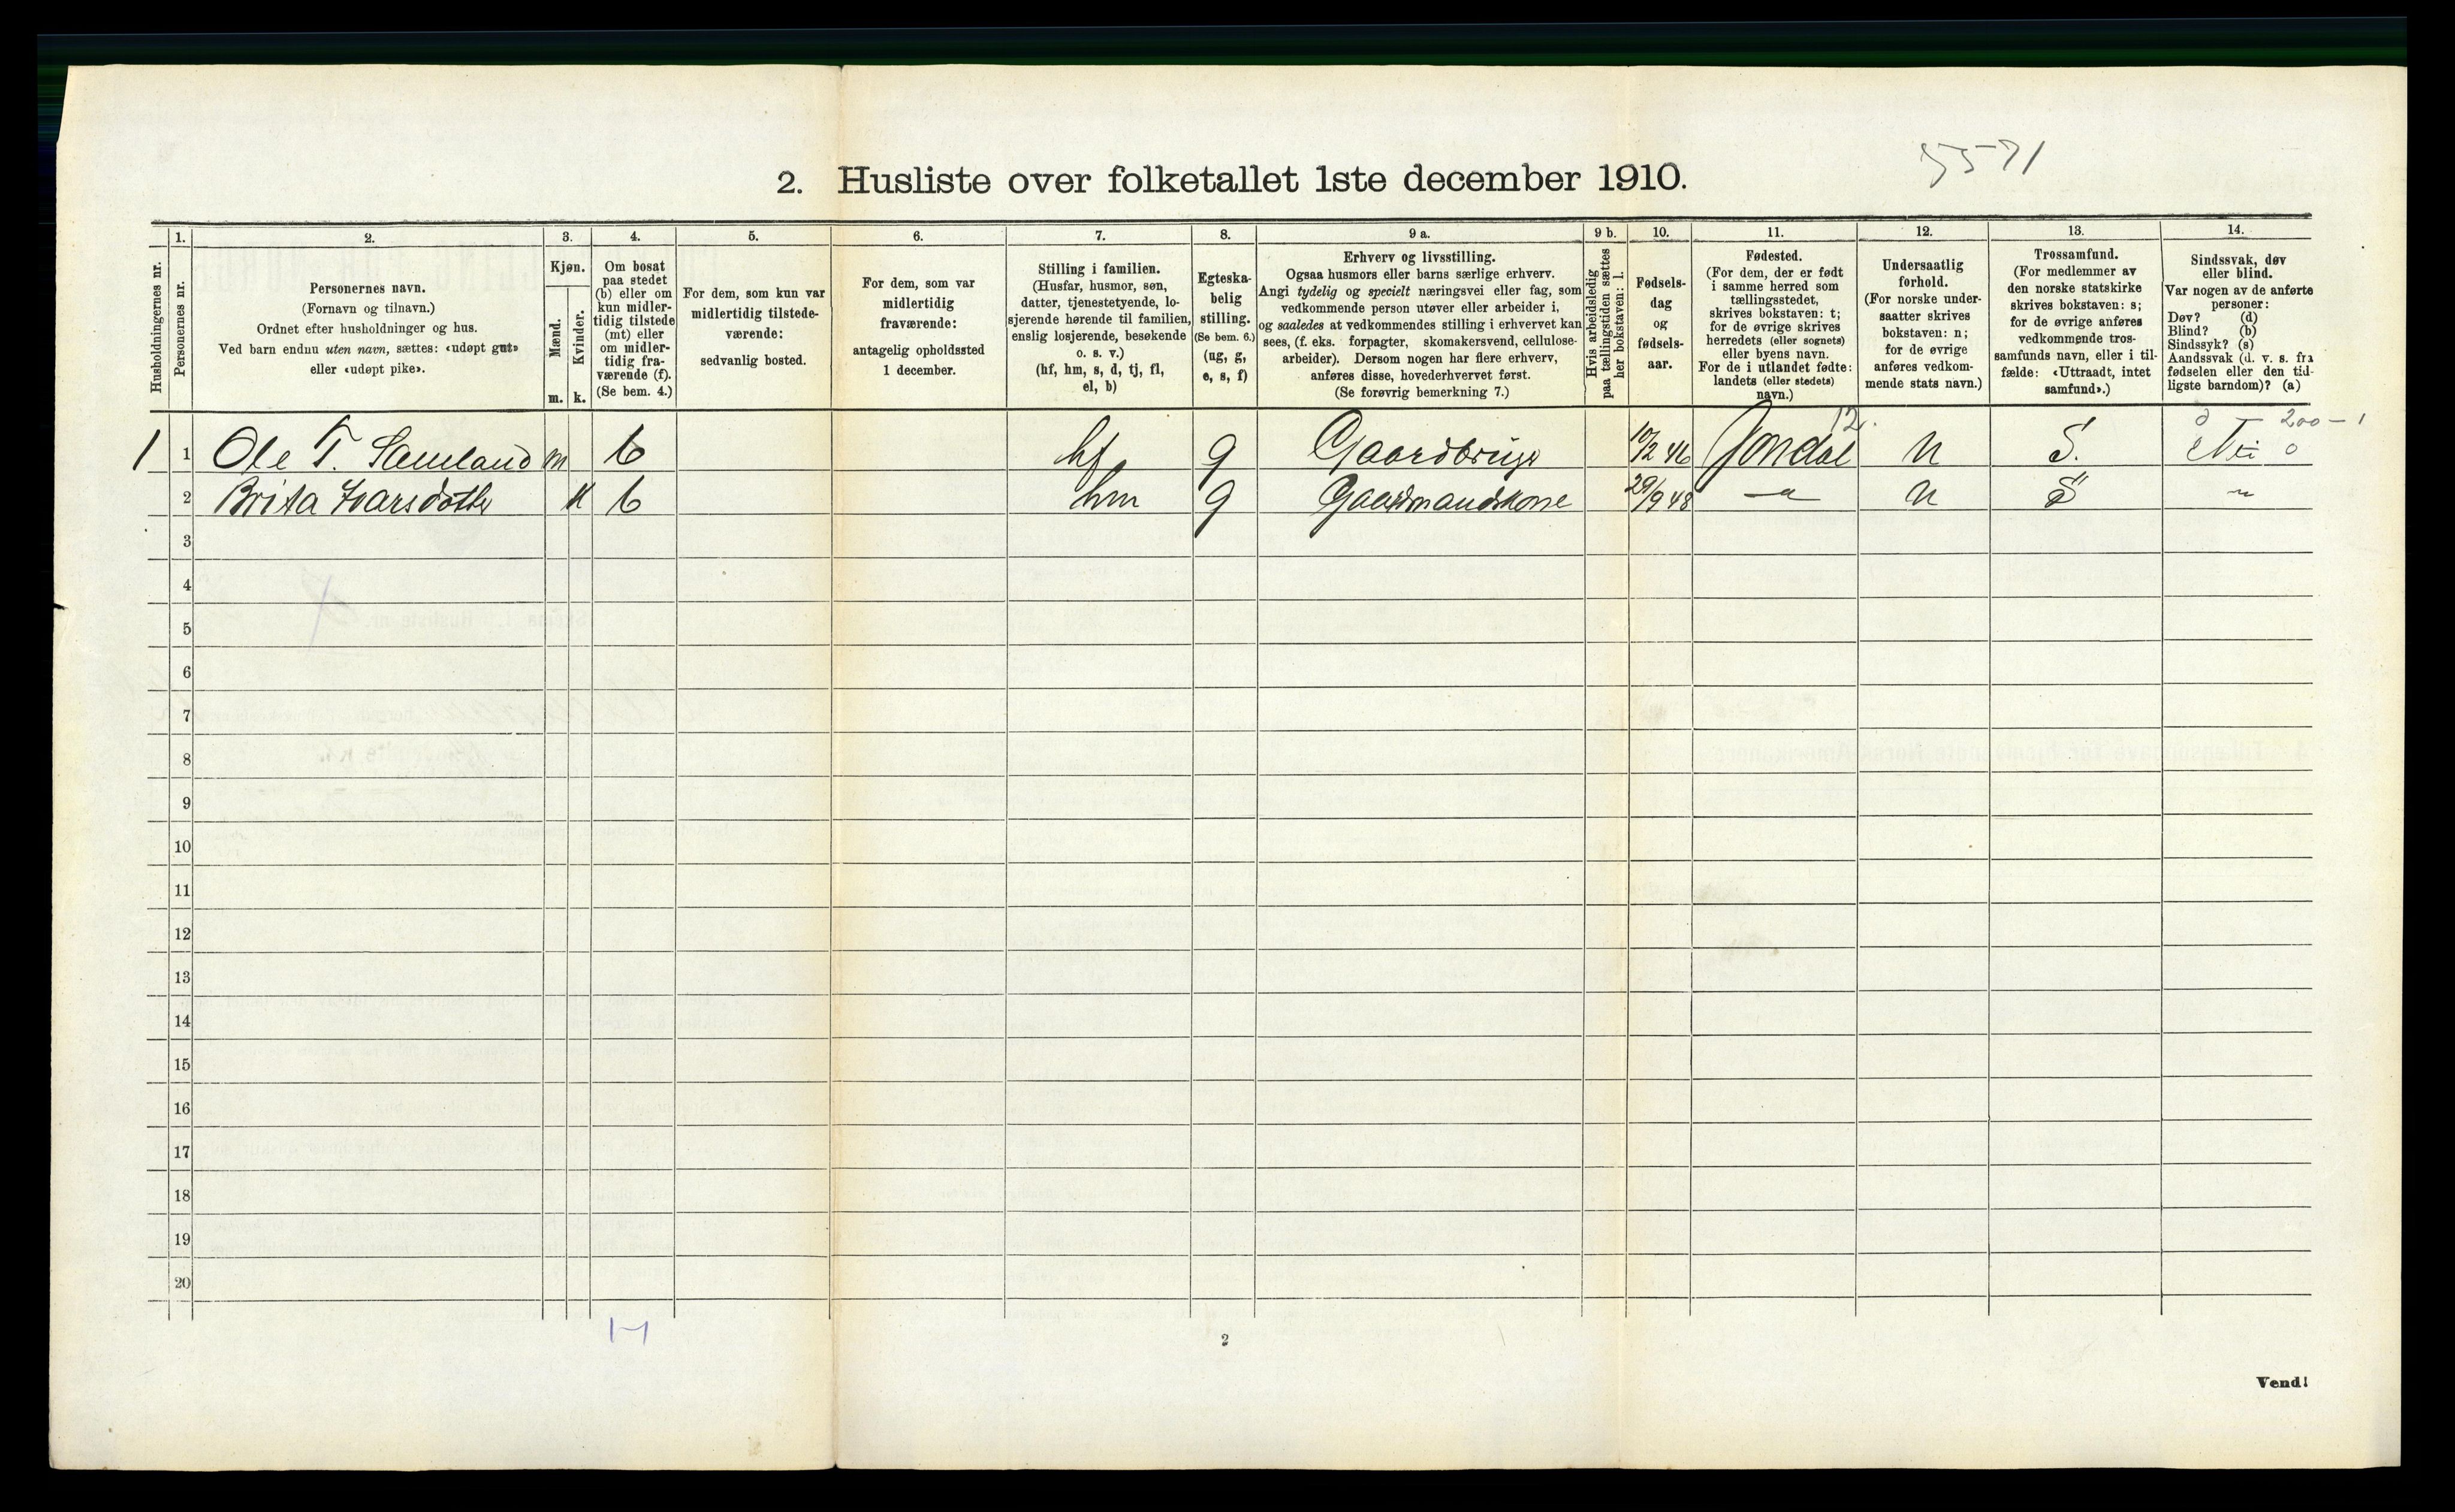 5571
2. Husliste over folketallet 1ste december 1910.
Husholdningernes nr.
1.
Personernes nr.
2.
Personernes navn.
(Fornavn og tilnavn.)
Ordnet efter husholdninger og hus.
Ved barn endnu uten navn, sættes: «udøpt gut»
eller «udøpt pike».
3.
Kjøn.
Mænd.
Kvinder.
m. k.
4.
Om bosat
paa stedet
(b) eller om
kun midler-
tidig tilstede
(mt) eller
om midler-
tidig fra-
værende (f).
(Se bem. 4.)
5.
For dem, som kun var
midlertidig tilstede-
værende:
sedvanlig bosted.
6.
For dem, som var
midlertidig
fraværende:
antagelig opholdssted
1 december.
7.
Stilling i familien.
(Husfar, husmor, søn,
datter, tjenestetyende, lo-
sjerende hørende til familien,
enslig losjerende, besøkende
o. s. v.)
(hf, hm, s, d, tj, fl,
el, b)
8.
Egteska-
belig
stilling.
(Se bem. 6.)
(ug, g,
e, s, f)
9 a.
Erhverv og livsstilling.
Ogsaa husmors eller barns særlige erhverv.
Angi tydelig og specielt næringsvei eller fag, som
vedkommende person utøver eller arbeider i,
og saaledes at vedkommendes stilling i erhvervet kan
sees, (f. eks. forpagter, skomakersvend, cellulose-
arbeider). Dersom nogen har flere erhverv,
anføres disse, hovederhvervet først.
(Se forøvrig bemerkning 7.)
9 b.
Hvis arbeidsledig
paa tællingstiden sættes
her bokstaven: l.
10.
Fødsels-
dag
og
fødsels-
aar.
11.
Fødested.
(For dem, der er født
i samme herred som
tællingsstedet,
skrives bokstaven: t;
for de øvrige skrives
herredets (eller sognets)
eller byens navn.
For de i utlandet fødte:
landets (eller stedets)
navn.)
12.
Undersaatlig
forhold.
(For norske under-
saatter skrives
bokstaven: n;
for de øvrige
anføres vedkom-
mende stats navn.)
13.
Trossamfund.
(For medlemmer av
den norske statskirke
skrives bokstaven: s;
for de øvrige anføres
vedkommende tros-
samfunds navn, eller i til-
fælde: «Uttraadt, intet
samfund».)
14.
Sindssvak, døv
eller blind.
Var nogen av de anførte
personer:
Døv? (d)
Blind? (b)
Sindssyk? (s)
Aandssvak (d. v. s. fra
fødselen eller den tid-
ligste barndom)? (a)
12. 0 200 - 1
1 1 Ole T. Samland m b hf g Gaardbruger 10/2 46 Jondal n S. Nei 0
2 Brita Ivarsdotter k b hm g Gaardmandskone 29/9 48 — n S
3
4
5
6
7
8
9
10
11
12
13
14
15
16
17
18
19
20
2
Vend!